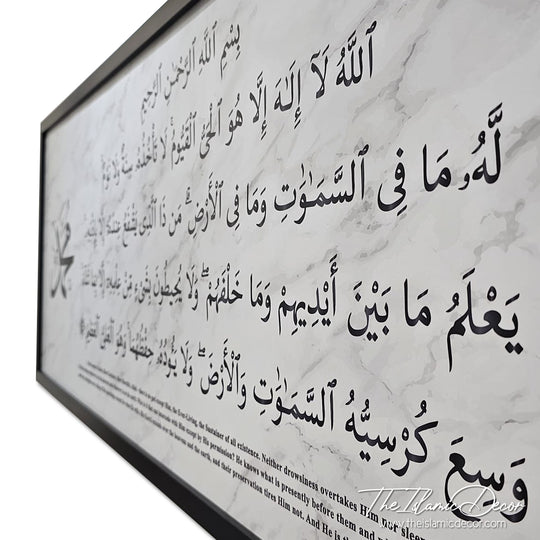 بِسْمِ ٱللَّهِ ٱلرَّحْمَٰنِ ٱلرَّحِيمِ
ٱللَّهُ لَآ إِلَـٰهَ إِلَّا هُوَ ٱلْحَىُّ ٱلْقَيُّومُ ۚ لَا تَأْخُذُهُۥ سِنَةٌ وَلَا نَوْمٌ ۚ
لَّهُۥ مَا فِى ٱلسَّمَـٰوَٰتِ وَمَا فِى ٱلْأَرْضِ ۗ مَن ذَا ٱلَّذِى يَشْفَعُ عِندَهُۥٓ إِلَّا بِإِذْنِهِۦ ۚ
يَعْلَمُ مَا بَيْنَ أَيْدِيهِمْ وَمَا خَلْفَهُمْ ۖ وَلَا يُحِيطُونَ بِشَىْءٍ مِّنْ عِلْمِهِۦٓ إِلَّا بِمَا شَآءَ ۚ
وَسِعَ كُرْسِيُّهُ ٱلسَّمَـٰوَٰتِ وَٱلْأَرْضَ ۖ وَلَا يَـُٔودُهُۥ حِفْظُهُمَا ۚ وَهُوَ ٱلْعَلِىُّ ٱلْعَظِيمُ
محمد
the Ever-Living, the Sustainer of all existence. Neither drowsiness overtakes Him nor sleep
except by His permission? He knows what is presently before them and
over the heavens and the earth, and their preservation tires Him not. And He is
The Islamic Decor
www.theislamicdecor.com